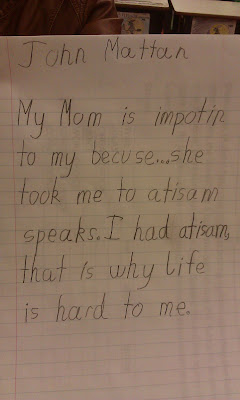 John Mattan
My Mom is impotin
to my becuse...she
took me to atisam
speaks. I had atisam,
that is why life
is hard to me.